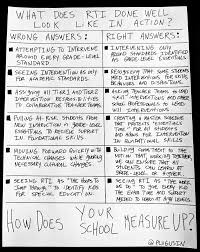 WHAT DOES RTI DONE WELL
LOOK LIKE IN ACTION?
WRONG ANSWERS:
RIGHT ANSWERS:
ATTEMPTING TO INTERVENE
AROUND EVERY GRADE-LEVEL
STANDARD.
INTERVENING ONLY
AROUND STANDARDS IDENTIFIED
AS GRADE-LEVEL ESSENTIALS
SEEING INTERVENTION AS ONLY
FOR ACADEMIC STANDARDS.
RECOGNIZING THAT SOME STUDENTS
NEED INTERVENTIONS
AND BEHAVIORS
ASSIGNING ALL TIER 2 AND TIER 3
INTERVENTION RESPONSIBILITIES
TO CLASSROOM TEACHERS.
ASKING TEACHER TEAMS TO LEAD
INTERVENTIONS AND OTHER
SCHOOL PROFESSIONALS TO LEAD
INTERVENTIONS
PULLING AT-RISK STUDENTS FROM
NEW INSTRUCTION IN GRADE LEVEL
ESSENTIALS TO RECEIVE SUPPORT
IN FOUNDATIONAL SKILLS
CREATING A MASTER SCHEDULE
THAT PROTECTS
TIME FOR ALL STUDENTS
AND ALLOWS FOR INTERVENTION
IN FOUNDATIONAL SKILLS
MOVING FORWARD QUICKLY WITH
TECHNICAL CHANGES WHILE
NECESSARY CULTURAL CHANGES
BUILDING CONSENSUS IN THE
WORKING TOGETHER
WE CAN ENSURE THAT ALL
STUDENTS
GRADE-LEVEL OR HIGHER.
SEEING RTI AS "THE HOOPS TO
JUMP THROUGH" TO IDENTIFY KIDS
FOR SPECIAL EDUCATION
SEEING RTI AS "THE WAY
WE DO" TO GIVE EVERY KID
THE EXTRA TIME AND SUPPORT
NEEDED TO LEARN AT HIGH LEVELS.
@PLUGUSIN
HOW DOES YOUR SCHOOL MEASURE UP?